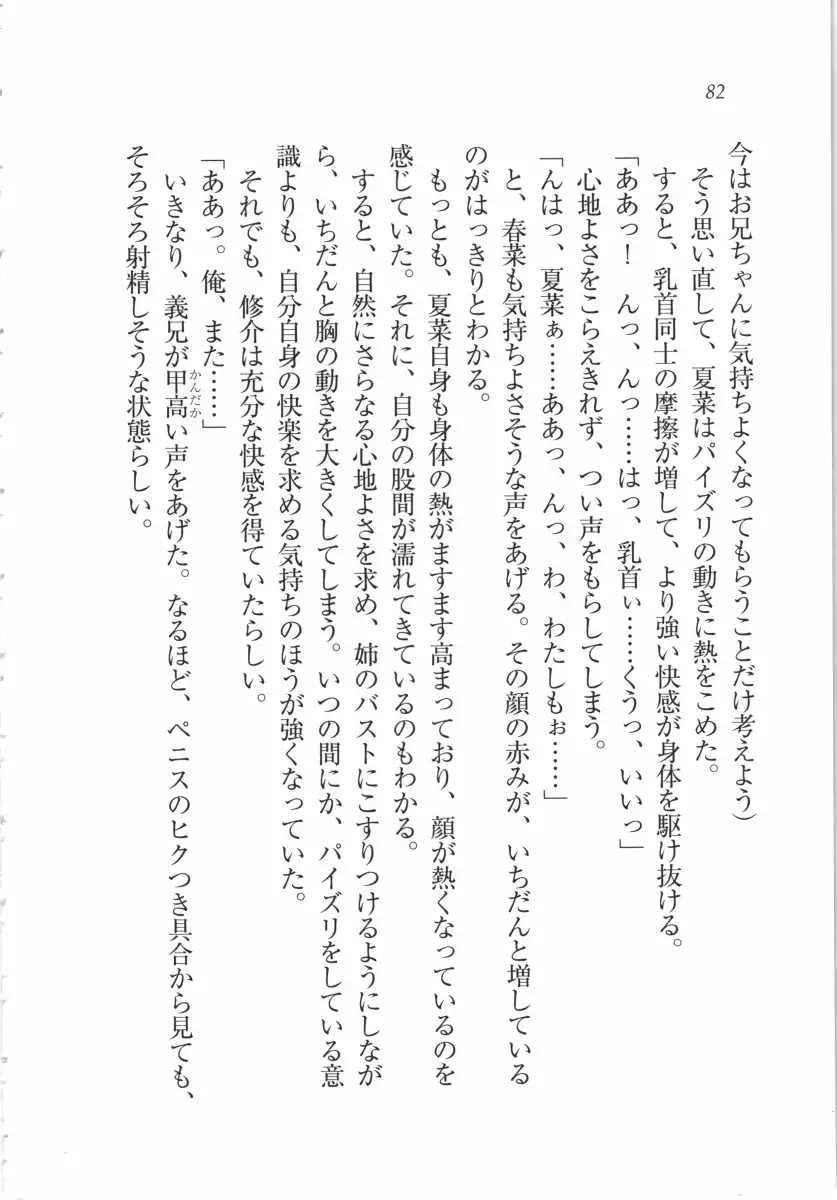 82
今はお兄ちゃんに気持ちよくなってもらうことだけ考えよう)
そう思い直して、夏菜はパイズリの動きに熱をこめた。
すると、乳首同士の摩擦が増して、より強い快感が身体を駆け抜ける。
「ああっ！　んっ、んっ……はっ、乳首ぃ……くうっ、いいっ」
心地よさをこらえきれず、つい声をもらしてしまう。
「んはっ、夏菜ぁ……ああっ、んっ、わ、わたしもぉ……」
と、春菜も気持ちよさそうな声をあげる。その顔の赤みが、いちだんと増している
のがはっきりとわかる。
もっとも、夏菜自身も身体の熱がますます高まっており、顔が熱くなっているのを
感じていた。それに、自分の股間が濡れてきているのもわかる。
すると、自然にさらなる心地よさを求め、姉のバストにこすりつけるようにしなが
ら、いちだんと胸の動きを大きくしてしまう。いつの間にか、パイズリをしている意
識よりも、自分自身の快楽を求める気持ちのほうが強くなっていた。
それでも、修介は充分な快感を得ていたらしい。
「ああっ。俺、また……」
いきなり、義兄が甲高い声をあげた。なるほど、ペニスのヒクつき具合から見ても、
かんだか
そろそろ射精しそうな状態らしい。